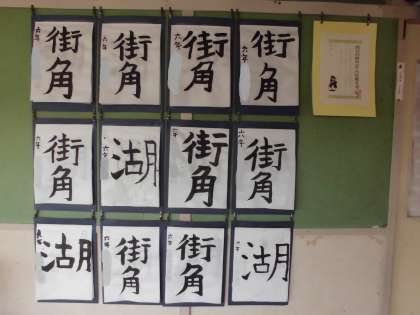 街角
六年
街角
六年
街角
六年
街角
六年
街角
六年
湖
六年
街角
街角
六年
湖
街角
六年
街角
六年
湖